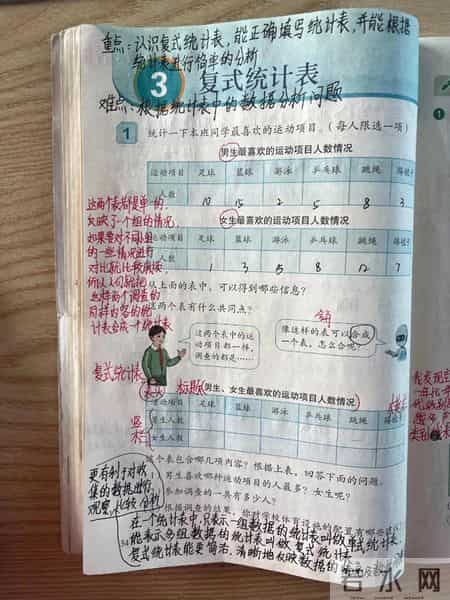 重点：认识复式统计表，能正确填写统计表，并能根据
统计表进行简单的分析
3 复式统计表
难点：根据统计表中的数据分析问题
1 统计一下本班同学最喜欢的运动项目。（每人限选一项）
男生最喜欢的运动项目人数情况
运动项目 足球 篮球 游泳 乒乓球 跳绳
人数 10 15 2 5 8 3
女生最喜欢的运动项目人数情况
运动项目 足球 篮球 游泳 乒乓球 跳绳
人数 1 3 5 8 12 7
这两个表都是单一的，
反映了一个组的情况，
如果要对不同组
的一些情况进行
计表合成一个统计表
从上面的表中，可以得到哪些信息？
这两个表有什么共同点？
这两个表中的运
动项目都一样，
调查的都是……
像这样的表可以合成
一个表，怎么合呢？
复式统计表
表头 标题
男生、女生最喜欢的运动项目人数情况
运动项目 足球 篮球 游泳 乒乓球 跳绳
男生人数
女生人数
竖栏
更有利于对收
集的数据进行
观察、比较、分析
这个表包含哪几项内容？根据上表，回答下面的问题。
男生喜欢哪种运动项目的人最多？女生呢？
参加调查的一共有多少人？
根据调查的结果，你对学校体育设施的配置有哪些建议？
在一个统计表中，只表示一组数据的统计表叫做单式统计表，
能表示多组数据的统计表叫做复式统计表
复式统计表能更简洁、清晰地反映数据的
36
我发现